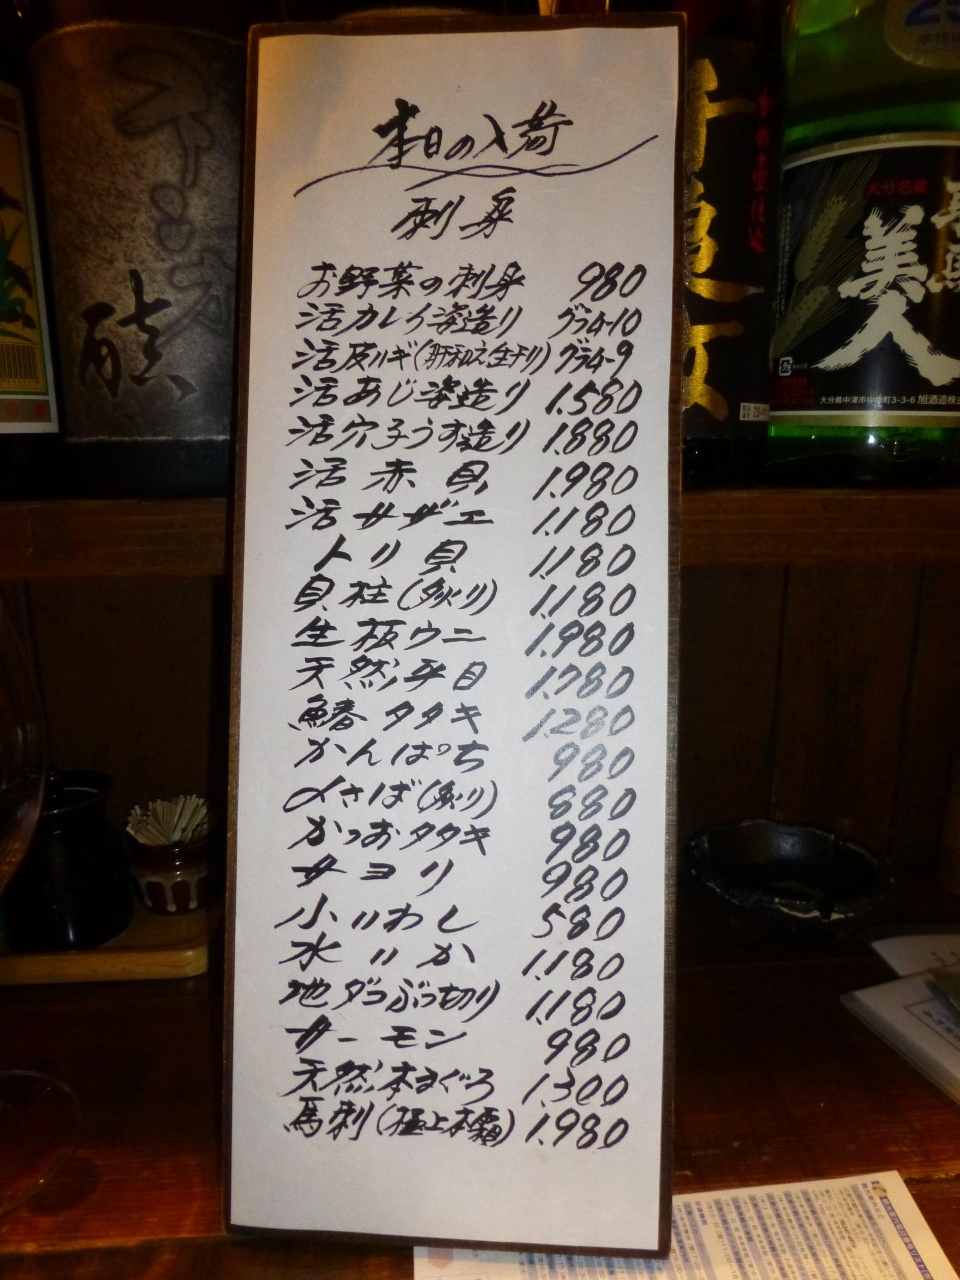 本日の入荷
刺身
お野菜の刺身 980
活カレイ姿造り グラ4-10
活皮ハギ(肝和え、生干リ) グラ4-9
活あじ姿造り 1.580
活穴子うす造り 1.880
活赤貝 1.980
活サザエ 1.180
トリ貝 1.180
貝柱(炙り) 1.180
生板ウニ 1.980
天然平目 1.780
鰆タタキ 1.280
かんぱち 980
〆さば(炙り) 880
かつおタタキ 980
サヨリ 980
小いわし 580
水いか 1.180
地ダコぶつ切り 1.180
サーモン 980
天然本まぐろ 1.300
馬刺(極上本霜) 1.980
大分名産
美人
大分県中津市中殿町3-3-6 旭酒造株